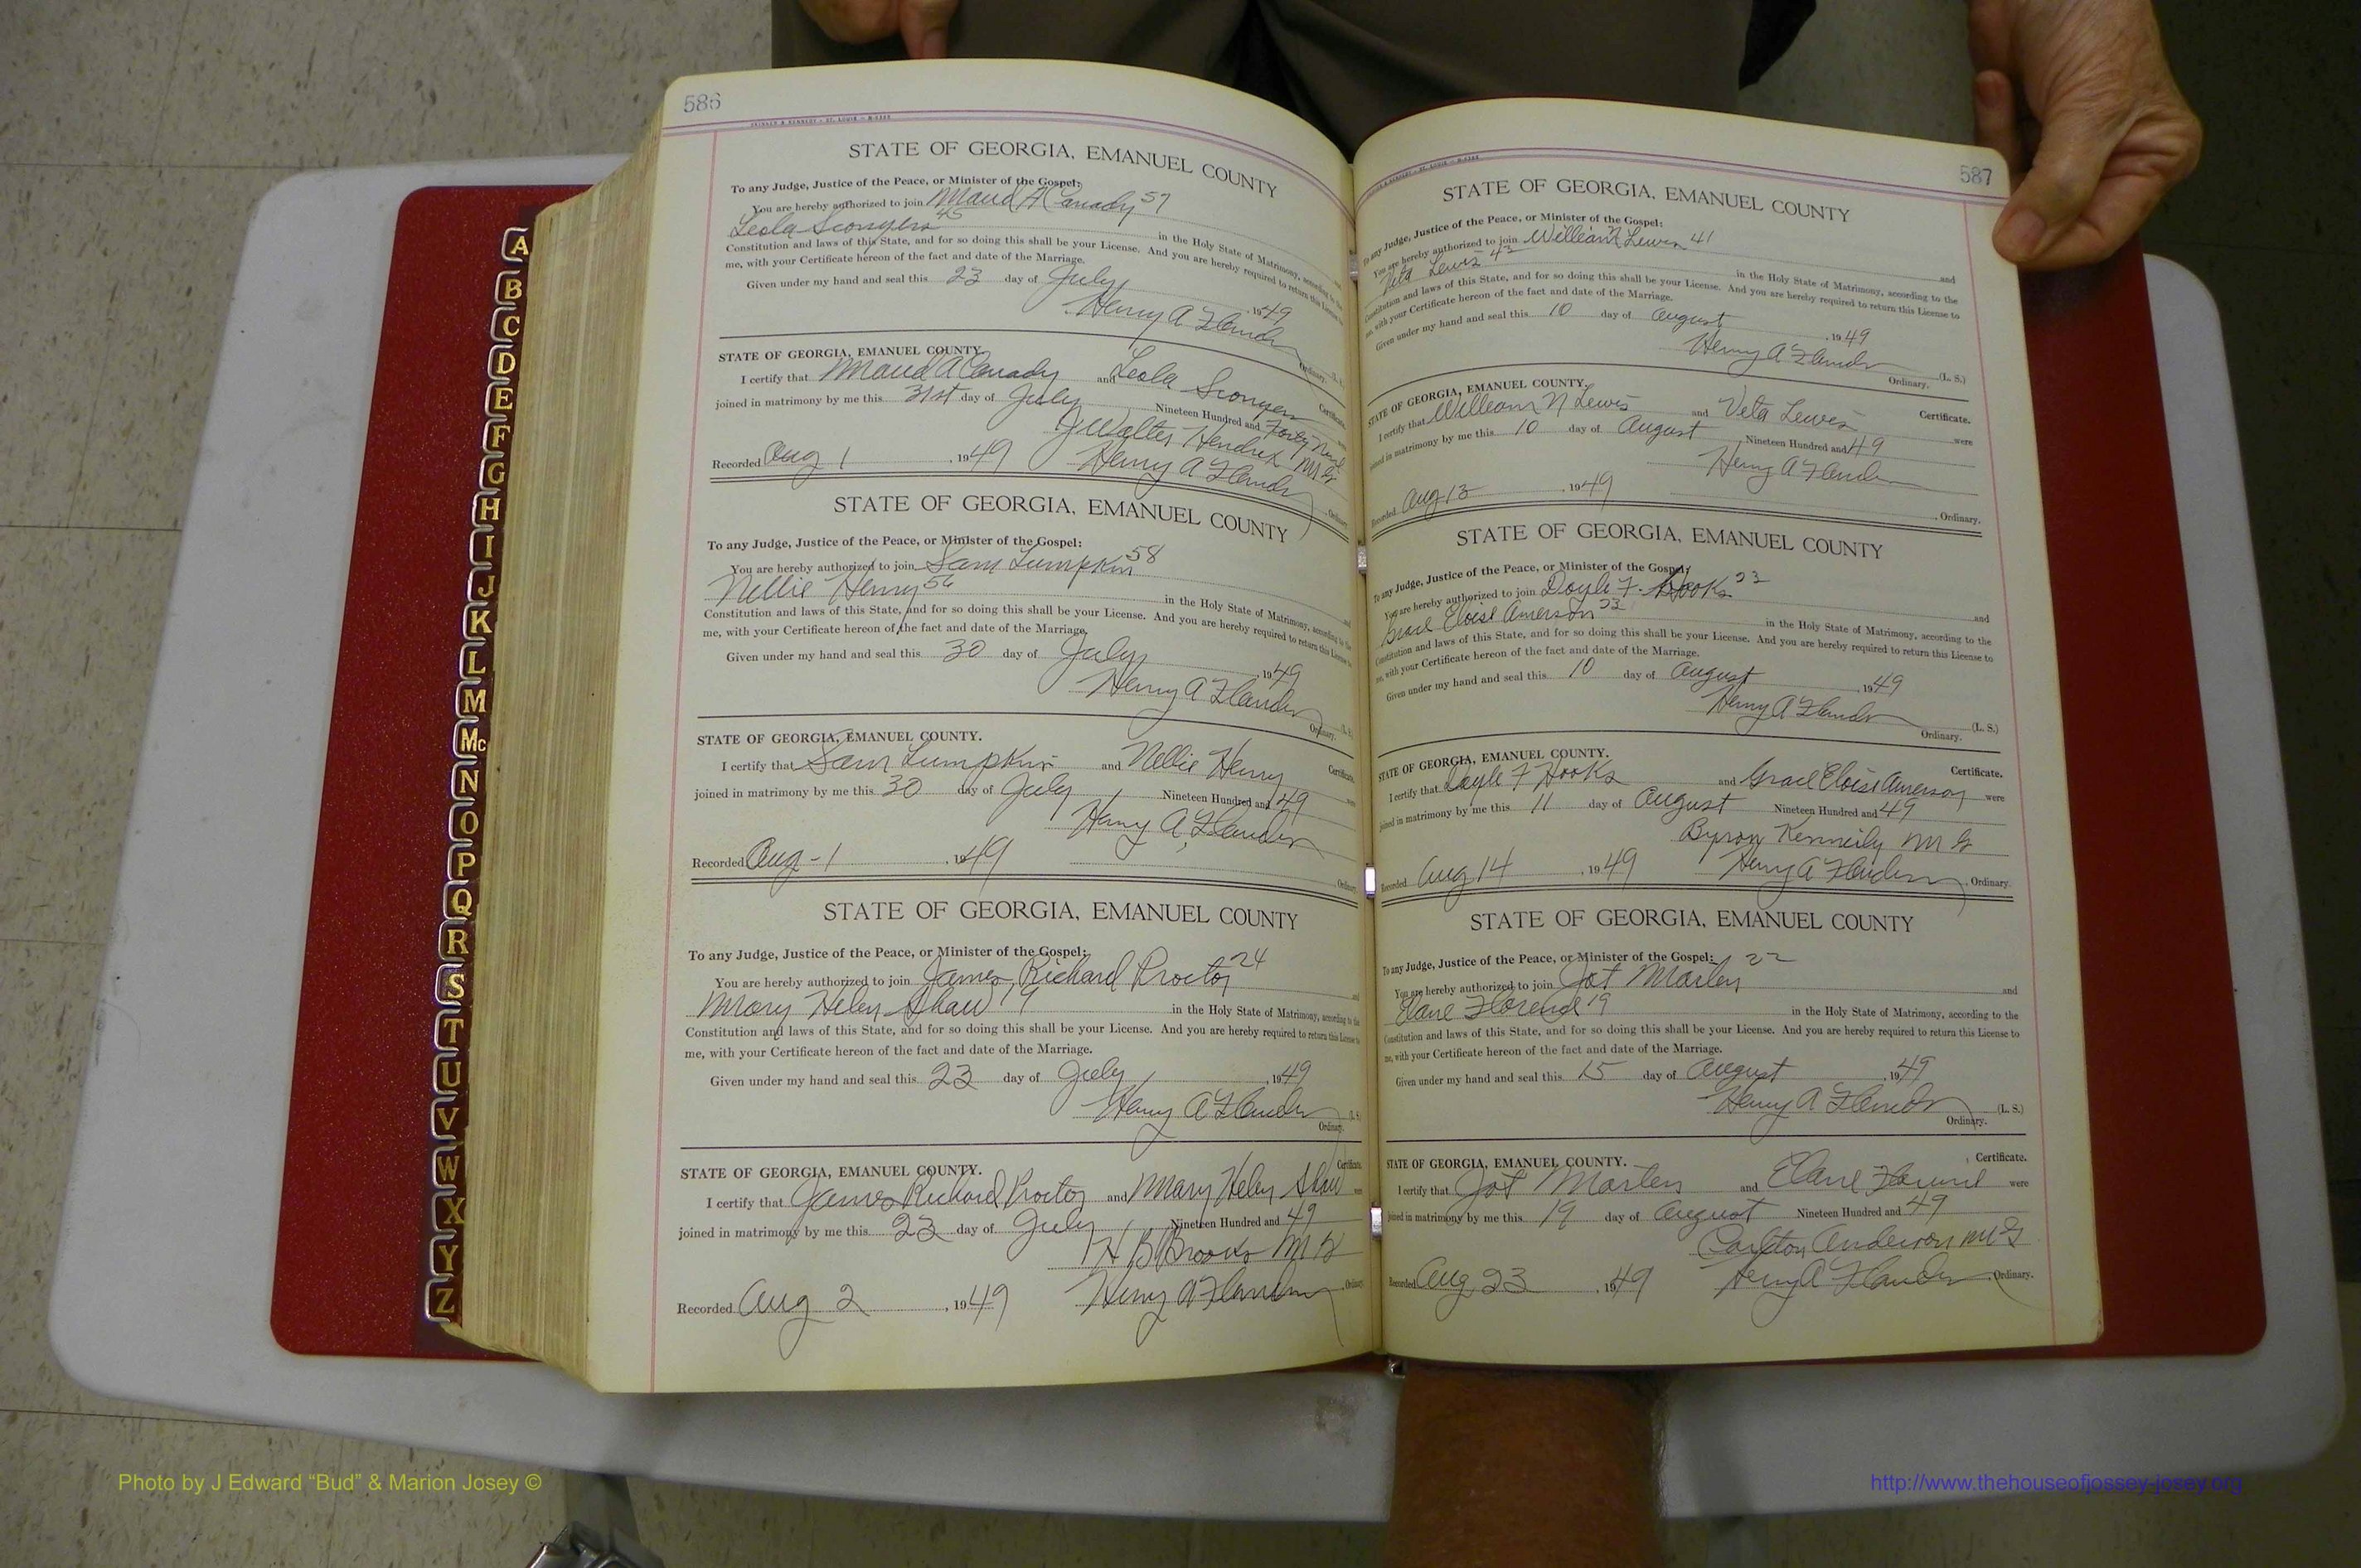 586
STATE OF GEORGIA, EMANUEL COUNTY
To any Judge, Justice of the Peace, or Minister of the Gospel:
You are hereby authorized to join Maud A Canady 57
Leola Scongers 45 in the Holy State of Matrimony, according to the
Constitution and laws of this State, and for so doing this shall be your License. And you are hereby required to return this License to
me, with your Certificate hereon of the fact and date of the Marriage.
Given under my hand and seal this 23 day of July 1949
Henry A Flanders
Ordinary.
STATE OF GEORGIA, EMANUEL COUNTY.
Certificate.
I certify that Maud A Canady and Leola
joined in matrimony by me this 31st day of July Nineteen Hundred and Forty Nine
J Walter Hendrix M G
Recorded Aug 1, 1949 Henry A Flanders Ordinary
STATE OF GEORGIA, EMANUEL COUNTY
To any Judge, Justice of the Peace, or Minister of the Gospel:
You are hereby authorized to join Sam Lumpkin 58
Nellie Henry 56 in the Holy State of Matrimony, according to the
Constitution and laws of this State, and for so doing this shall be your License. And you are hereby required to return this License to
me, with your Certificate hereon of the fact and date of the Marriage.
Given under my hand and seal this 30 day of July 1949
Henry A Flanders
Ordinary.
STATE OF GEORGIA, EMANUEL COUNTY.
Certificate.
I certify that Sam Lumpkin and Nellie Henry were
joined in matrimony by me this 30 day of July Nineteen Hundred and 49
Henry A Flanders
Recorded Aug - 1, 1949 Ordinary
STATE OF GEORGIA, EMANUEL COUNTY
To any Judge, Justice of the Peace, or Minister of the Gospel:
You are hereby authorized to join James Richard Proctor 24 and
Mary Helen Shaw 19 in the Holy State of Matrimony, according to the
Constitution and laws of this State, and for so doing this shall be your License. And you are hereby required to return this License to
me, with your Certificate hereon of the fact and date of the Marriage.
Given under my hand and seal this 23 day of July, 1949
Henry A Flanders (L. S.)
Ordinary.
STATE OF GEORGIA, EMANUEL COUNTY.
Certificate.
I certify that James Richard Proctor and Mary Helen Shaw were
joined in matrimony by me this 23 day of July Nineteen Hundred and 49
H B Brooks M G
Recorded Aug 2, 1949 Henry A Flanders Ordinary
587
STATE OF GEORGIA, EMANUEL COUNTY
To any Judge, Justice of the Peace, or Minister of the Gospel:
You are hereby authorized to join William N Lewis 41 and
Veta Lewis 42 in the Holy State of Matrimony, according to the
Constitution and laws of this State, and for so doing this shall be your License. And you are hereby required to return this License to
me, with your Certificate hereon of the fact and date of the Marriage.
Given under my hand and seal this 10 day of August, 1949
Henry A Flanders (L. S.)
Ordinary.
STATE OF GEORGIA, EMANUEL COUNTY.
Certificate.
I certify that William N Lewis and Veta Lewis were
joined in matrimony by me this 10 day of August Nineteen Hundred and 49
Henry A Flanders
Recorded Aug 13, 1949 Ordinary.
STATE OF GEORGIA, EMANUEL COUNTY
To any Judge, Justice of the Peace, or Minister of the Gospel:
You are hereby authorized to join Doyle F. Hooks 23 and
Grace Eloise Amerson 23 in the Holy State of Matrimony, according to the
Constitution and laws of this State, and for so doing this shall be your License. And you are hereby required to return this License to
me, with your Certificate hereon of the fact and date of the Marriage.
Given under my hand and seal this 10 day of August, 1949
Henry A Flanders (L. S.)
Ordinary.
STATE OF GEORGIA, EMANUEL COUNTY.
Certificate.
I certify that Doyle F Hooks and Grace Eloise Amerson were
joined in matrimony by me this 11 day of August Nineteen Hundred and 49
Byron Kennerly M G
Recorded Aug 14, 1949 Henry A Flanders, Ordinary.
STATE OF GEORGIA, EMANUEL COUNTY
To any Judge, Justice of the Peace, or Minister of the Gospel:
You are hereby authorized to join Jot Marlen 22 and
Elane 19 in the Holy State of Matrimony, according to the
Constitution and laws of this State, and for so doing this shall be your License. And you are hereby required to return this License to
me, with your Certificate hereon of the fact and date of the Marriage.
Given under my hand and seal this 15 day of August, 1949
Henry A Flanders (L. S.)
Ordinary.
STATE OF GEORGIA, EMANUEL COUNTY.
Certificate.
I certify that Jot and Elane were
joined in matrimony by me this 19 day of August Nineteen Hundred and 49
Carlton Anderson M G
Recorded Aug 23, 1949 Henry A Flanders, Ordinary.
A
B
C
D
E
F
G
H
I
J
K
L
M
Mc
N
O
P
Q
R
S
T
U
V
W
X
Y
Z
Photo by J Edward “Bud” & Marion Josey ©
http://www.thehouseofjossey-josey.org